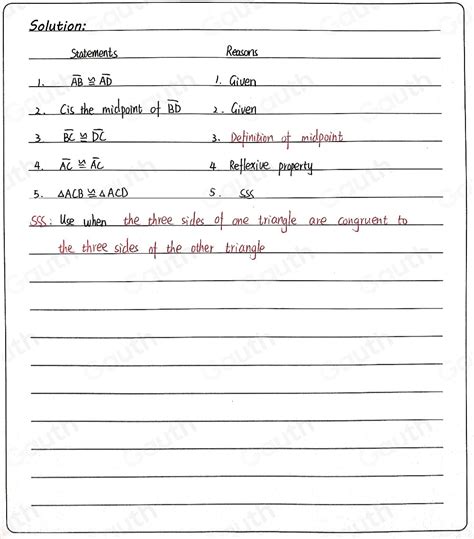 Solution:
Statements Reasons
1. AB ≅ AD 1. Given
2. C is the midpoint of BD 2. Given
3. BC ≅ DC 3. Definition of midpoint
4. AC ≅ AC 4. Reflexive property
5. △ACB ≅ △ACD 5. SSS
SSS: Use when the three sides of one triangle are congruent to
the three sides of the other triangle
Gauth